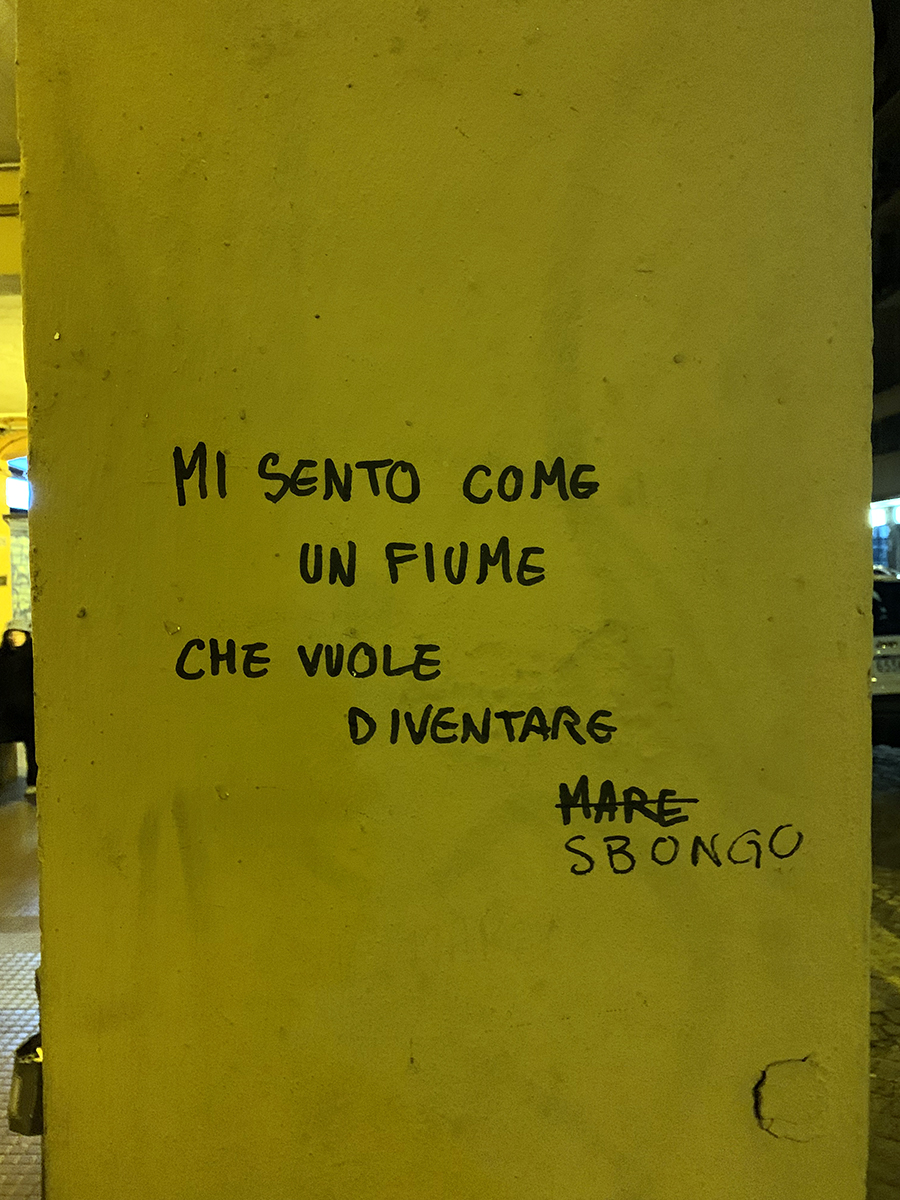 MI SENTO COME
UN FIUME
CHE VUOLE
DIVENTARE
MARE
SBONGO